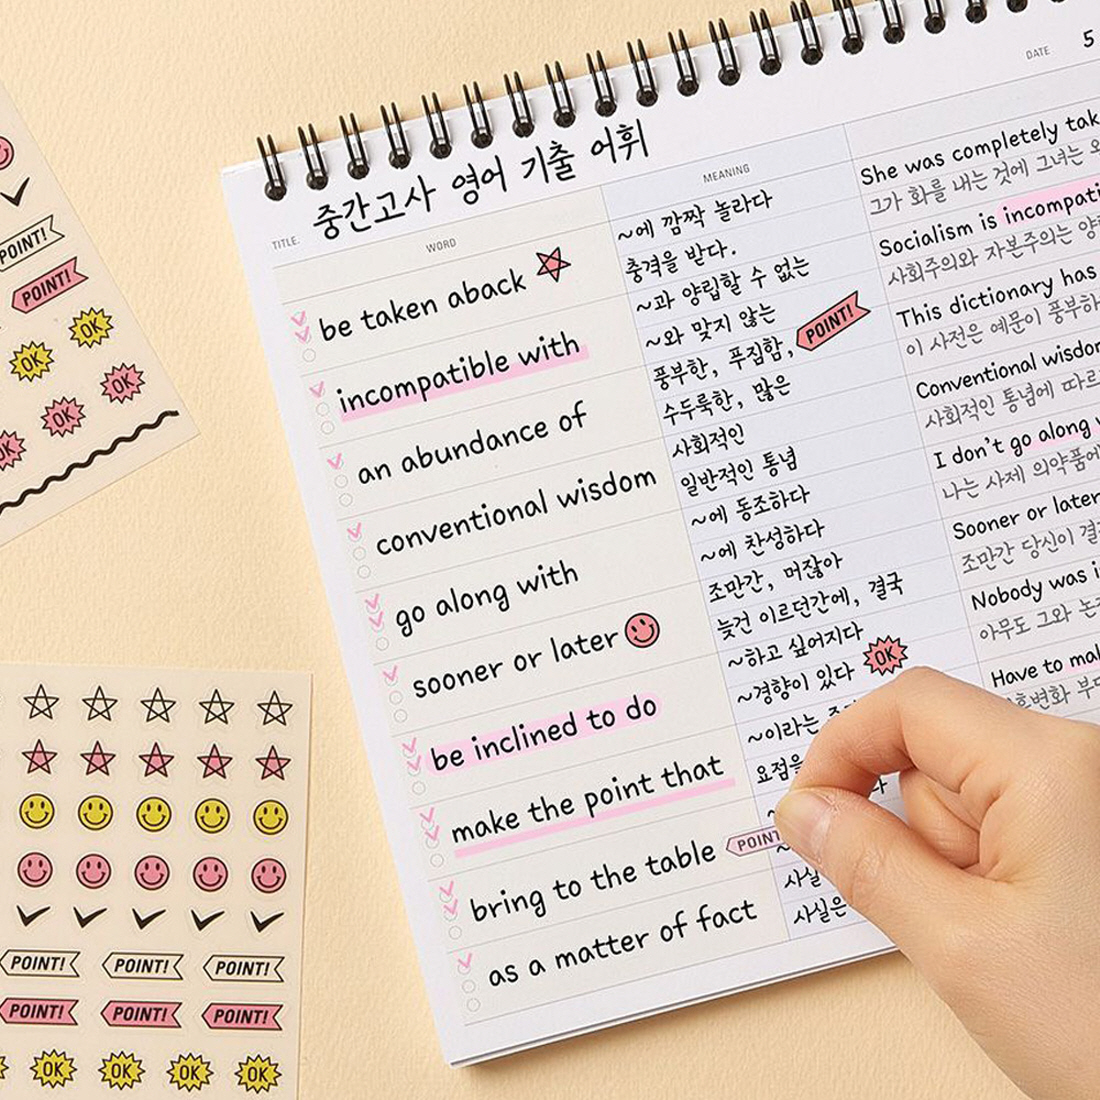 TITLE. 중간고사 영어 기출 어휘
DATE 5
WORD
MEANING
be taken aback
~에 깜짝 놀라다
충격을 받다.
She was completely
그가 화를 내는 것에 그녀는
incompatible with
~과 양립할 수 없는
~와 맞지 않는
Socialism is
사회주의와 자본주의는
an abundance of
풍부한, 푸짐함,
수두룩한, 많은
POINT!
This dictionary has
이 사전은 예문이
conventional wisdom
사회적인
일반적인 통념
Conventional
사회적인 통념에
go along with
~에 동조하다
~에 찬성하다
I don't go along
나는 사제
sooner or later
조만간, 머잖아
늦건 이르던간에, 결국
Sooner or later
조만간 당신이
be inclined to do
~하고 싶어지다
~경향이 있다
OK
Nobody was
아무도 그와
make the point that
~이라는
Have to
bring to the table
as a matter of fact
사실은
POINT!
POINT!
OK
OK
OK
OK
OK
POINT! POINT! POINT!
POINT! POINT! POINT!
OK OK OK OK